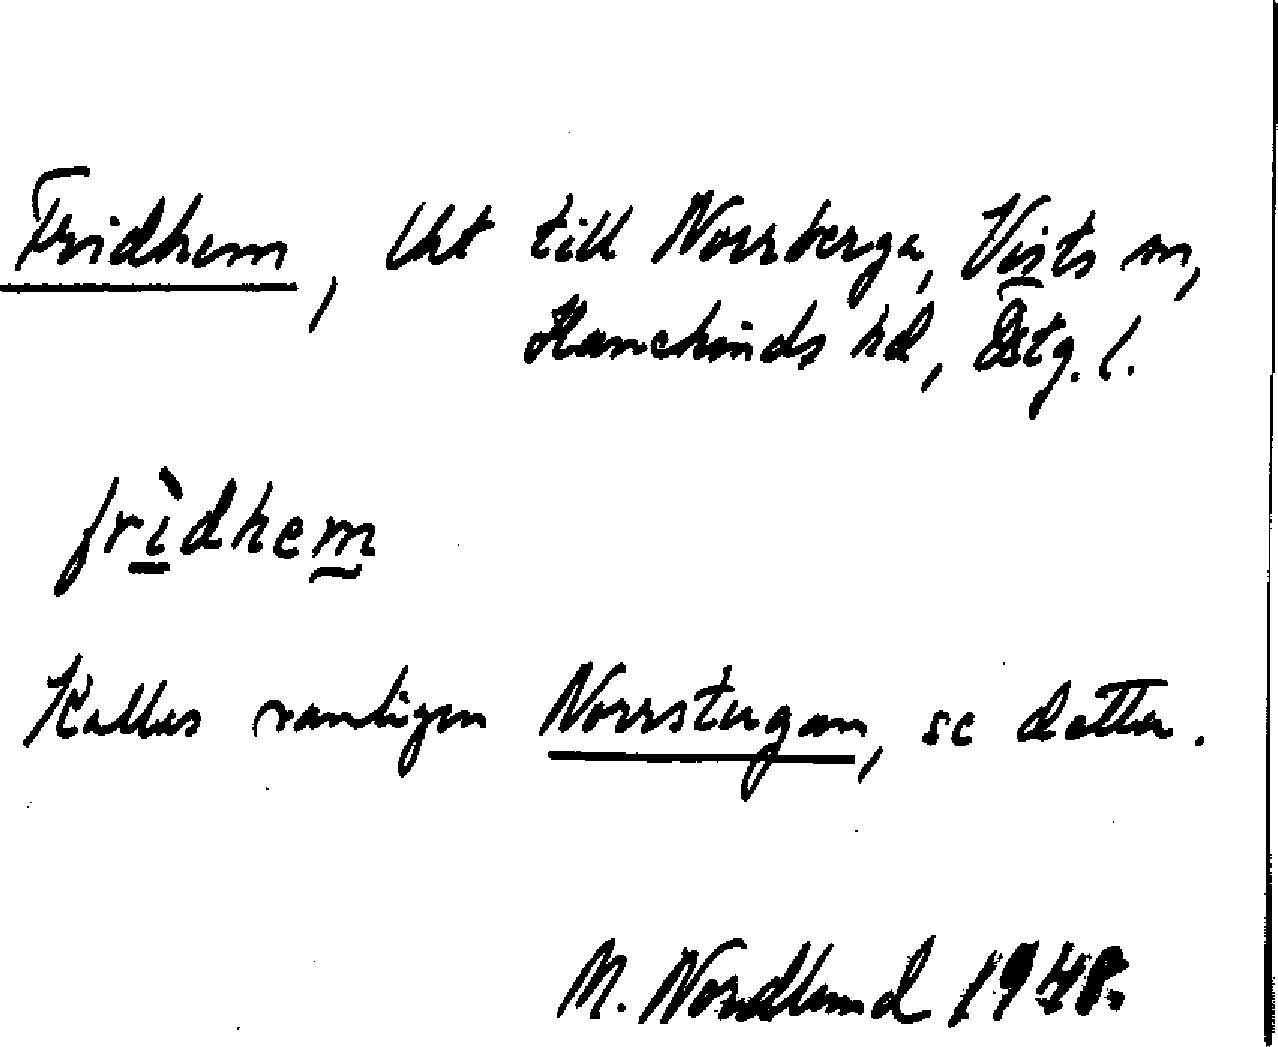 Fridhem, lht till Norrberga, Vists sn,
Hanekinds hd, Östg. l.
frìdhem
Kallas vanligen Norrstugan, se detta.
M. Nordlund 1948.